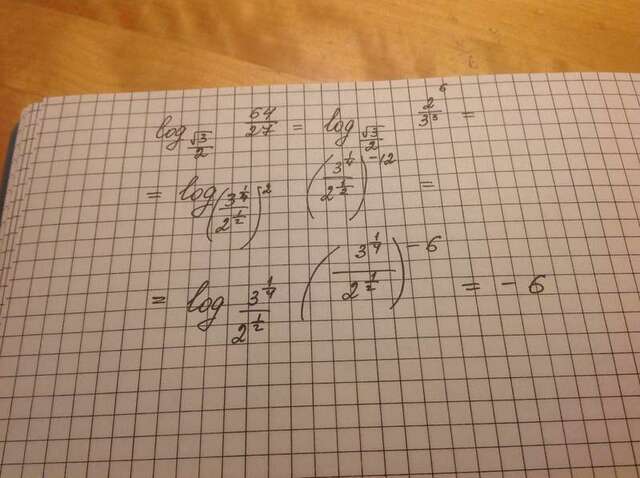 log_{\frac{\sqrt{3}}{2}} \frac{64}{27} = log_{\frac{\sqrt{3}}{2}} \frac{2^6}{3^3} =
= log_{\left(\frac{3^{\frac{1}{4}}}{2^{\frac{1}{2}}}\right)^2} \left(\frac{3^{\frac{1}{4}}}{2^{\frac{1}{2}}}\right)^{-12} =
= log_{\frac{3^{\frac{1}{4}}}{2^{\frac{1}{2}}}} \left(\frac{3^{\frac{1}{4}}}{2^{\frac{1}{2}}}\right)^{-6} = -6